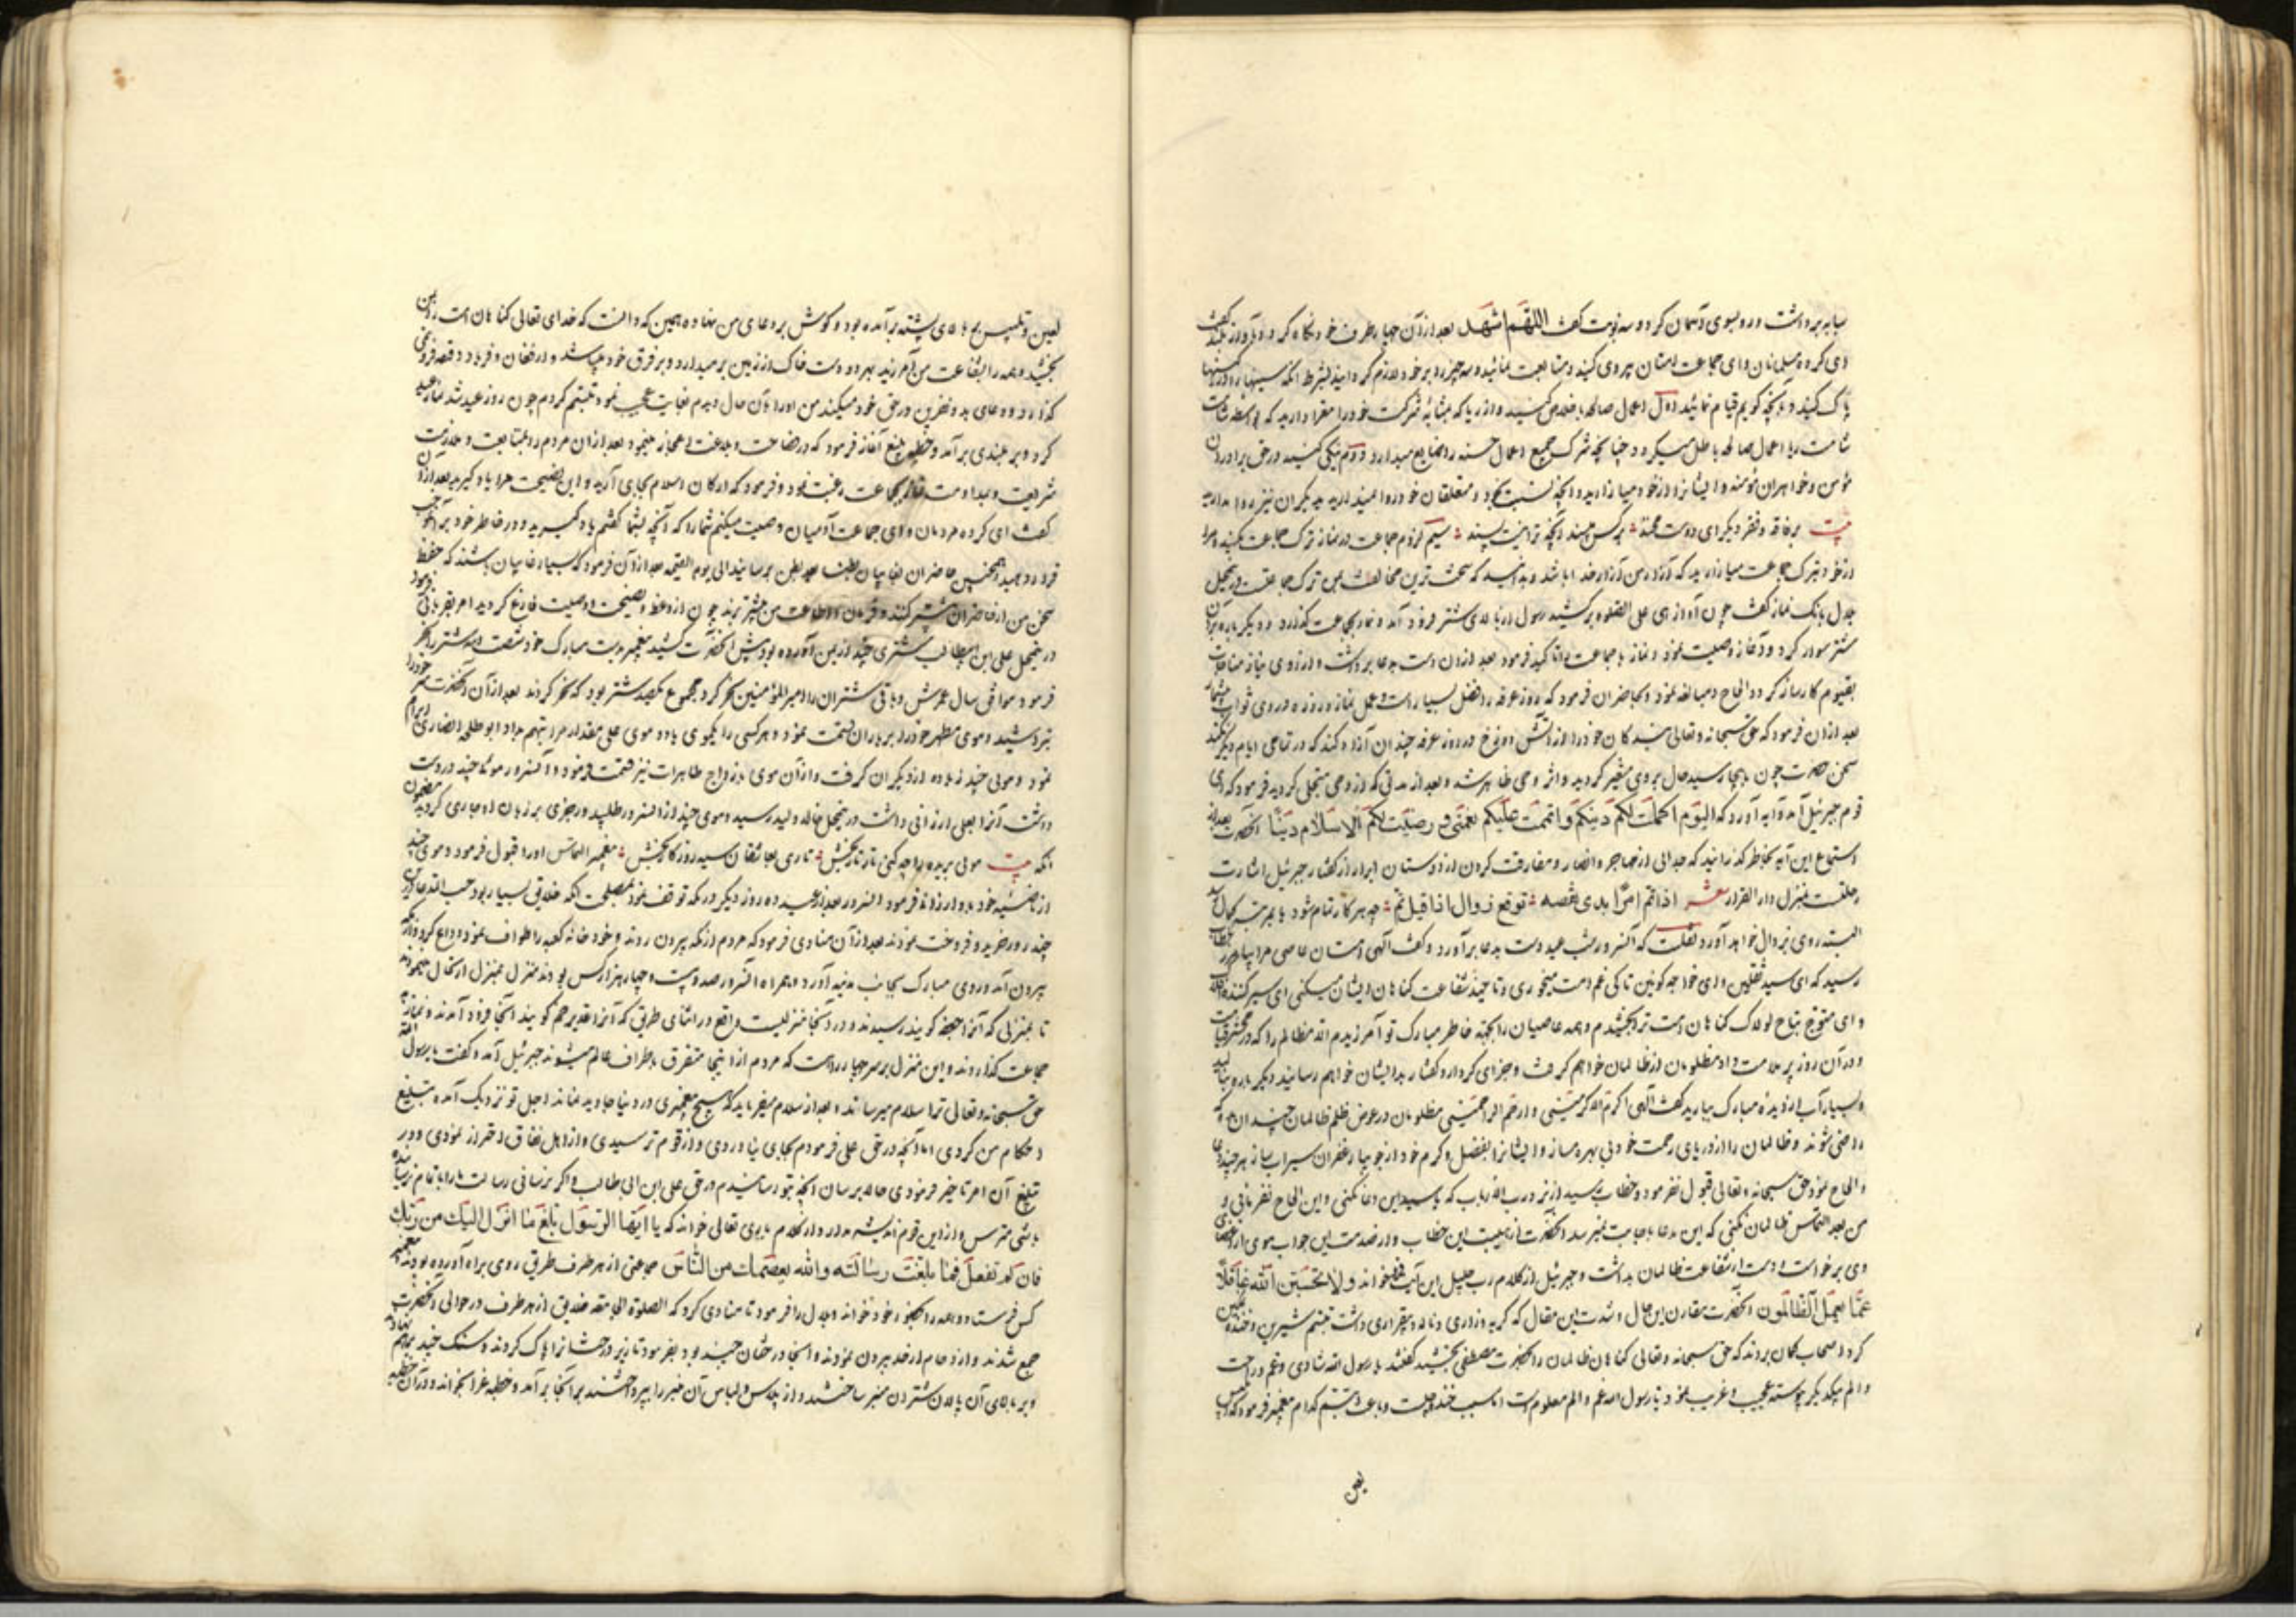 سبابه برداشت و روسوی آسمان کرد و سه نوبت گفت اللهم اشهد بعد از آن چهار طرف خود نگاه کرد و بآواز بلند گفت
ای گروه مسلمانان و ای جماعت ایشان پیروی کنید و متابعت نمائید و سه چیز را بر خود لازم گردانید بشرط آنکه سینها را از کینها
پاک کنید و بآنچه گویم قیام نمائید اول اعمال صالحه باخلاص کنید و از ریا که بمثابه شرکست خود را معرا دارید که
شامت ریا اعمال صالحه باطل میگردد چنانچه شرک جمیع اعمال حسنه را ضایع میدارد دوم نیکی کنید در حق برادران
مؤمن و خواهران مؤمنه و ایشانرا از خود میازارید و آنچه نسبت بخود و متعلقان خود روا میدارید بدیگران نیز روا دارید
بیت بر فاقه و فقر دیگر ای دوست مخند بر کس مپسند آنچه ترا نیست پسند سیم لزوم جماعت در نماز ترک جماعت مکنید و مرا
از خود بترک جماعت میازارید که آزار من آزار خدا باشد و بدانید که سخت ترین مخالفت من ترک جماعتست در محل
بلال بانک نماز گفت چون آواز حی علی الصلوة برکشید رسول از بالای شتر فرود آمد و نماز بجماعت گذارد و دیگر باره بر آن
شتر سوار کرد و آغاز وصیت نمود و نماز با جماعت را تاکید فرمود بعد از آن دست بدعا برداشت و از روی نیاز مناجات
بقیوم کارساز کرد و الحاح و مبالغه نمود و بحاضران فرمود که روز عرفه را فضل بسیار است و عمل نماز و روزه در وی ثواب بیشمار
بعد از آن فرمود که حق سبحانه و تعالی بندگان خود را از آتش دوزخ در روز عرفه چندان آزاد کند که در تمامی ایام دیگر نکند
سخن حضرت چون باینجا رسید حال بر وی متغیر گردید و اثر وحی ظاهر شد و بعد از مدتی که از وحی متجلی گردید فرمود که ای
قوم جبرئیل آمد و آیه آورد که الیوم اکملت لکم دینکم و اتممت علیکم نعمتی و رضیت لکم الاسلام دینا آنحضرت بعد از
استماع این آیه بخاطر گذرانید که جدائی از مهاجر و انصار و مفارقت کردن از دوستان ابرار از گفتار جبرئیل اشارت
رحلتست بمنزل دار القرار شعر اذا تم امرا بدی نقصه توقع زوال اذا قیل تم چه هر کار تمام شود بمرتبه کمال رسد
البته روی بزوال خواهد آورد نقلست که آنسرور شب عید دست بدعا برآورد و گفت الهی امتان عاصی مرا بیامرز خطاب
رسید که ای سید ثقلین و ای خواجه کونین تا کی غم امت میخوری و تا چند شفاعت گناهان ایشان میکنی ای سیر کننده
و ای متوج بتاج لولاک گناهان امت ترا بخشیدم و همه عاصیان را بجهة خاطر مبارک تو آمرزیدم الا مظالم را که در محشر قیامت
و در آن روز پر ملامت داد مظلومان از ظالمان خواهم گرفت و جزای کردار و گفتار بدایشان خواهم رسانید دیگر باره
و بسیار آب از دیده مبارک ببارید گفت الهی اکرم الاکرمینی و ارحم الراحمینی مظلومان در عوض ظلم ظالمان چندان ده که
راضی شوند و ظالمان را از دریای رحمت خود بی بهره مساز و ایشانرا بفضل و کرم خود از جویبار غفران سیراب ساز هر چند
الحاح نمود حق سبحانه و تعالی قبول نفرمود و خطاب رسید از نزد رب الارباب که یا سید این دعا نکنی و این الحاح نفرمائی و
من بعد التماس ظالمان نکنی که این دعا باجابت نمیرسد آنحضرت از هیبت این خطاب و از صدمت این جواب موی از اعضای
وی برخواست و دست از شفاعت ظالمان بداشت و جبرئیل از کلام رب جلیل این آیت خواند و لا تحسبن الله غافلا
عما یعمل الظالمون آنحضرت مقارن این حال و شدت این مقال که گریه و زاری و ناله و بیقراری داشت تبسم شیرین و خنده
کرد اصحاب گمان بردند که حق سبحانه و تعالی گناهان ظالمان را بحضرت مصطفی بخشید گفتند یا رسول الله شادی و غم و راحت
و الم بیکدیگر پیوسته عجیب و غریب نمود یا رسول الله غم و الم معلومست اما سبب خنده چیست و باعث تبسم کدام پیغمبر فرمود که ابلیس
لعین
لعین و تلبیس بر بالای پشته برآمده بود و گوش بر دعای من نهاده همین که دانست که خدای تعالی گناهان امت را بمن
بخشید و همه را بشفاعت من آمرزید بهر دو دست خاک از زمین بر میدارد و بر فرق خود میپاشد و در فغان و فریاد
و دعای بد و نفرین در حق خود میکند من او را بآن حال دیدم بغایت عجیب نمود تبسم کردم چون روز عید شد نماز عید
کرد و بر بلندی برآمد و خطبه بلیغ آغاز فرمود که در فصاحت و بلاغت اعجاز مینمود بعد از آن مردم را بمتابعت و ملازمت
شریعت و مداومت نماز بجماعت رغبت نمود و فرمود که ارکان اسلام بجای آرید و این نصیحت مرا یاد گیرید بعد از آن
گفت ای گروه مردمان و ای جماعت آدمیان وصیت میکنم شما را که آنچه بشما گفتم یاد گیرید و در خاطر خود
قرار دهید و همچنین حاضران بغایبان بطنا بعد بطن برسانید الی یوم القیمه بعد از آن فرمود که بسیار غایبان باشند که حفظ
سخن من از حاضران بیشتر کنند و فرمان و اطاعت من بیشتر برند چون از وعظ و نصیحت و وصیت فارغ گردید امر بقربانی فرمود
در محل علی ابن ابیطالب شتری چند از یمن آورده بود پیش آنحضرت کشید پیغمبر بدست مبارک خود شصت و سه شتر را نحر
فرمود موافق سال عمرش و باقی شتران را امیر المؤمنین نحر کرد مجموع یکصد شتر بود که نحر کردند بعد از آن آنحضرت سر خود را
بتراشید و موی مطهر خود را بر یاران قسمت نمود و هر کسی را یکموی یا دو موی علی مقدار مراتبهم بداد ابو طلحه انصاری ابرام
نمود و موئی چند زیاده از دیگران گرفت و از آن موی بازواج طاهرات نیز قسمت فرمود و آنسرور موئی چند در دست
داشت آنرا بعلی ارزانی داشت در محل خالد ولید رسید و موی چند از آنسرور طلبید و رجزی بر زبان او جاری گردید مضمون
آنکه بیت موئی بریده را چه کنی تار تار بخش تاری بعاشقان سیه روزگار بخش پیغمبر التماس او را قبول فرمود و موی چند
از ناصیه خود بدو ارزانی فرمود آنسرور بعد از عید ده روز دیگر در مکه توقف نمود بمصلحت آنکه خلایق بسیار بود
چند روز خرید و فروخت نمودند بعد از آن منادی فرمود که مردم از مکه بیرون روند و خود خانه کعبه را طواف نمود و وداع کرد و از مکه
بیرون آمد و روی مبارک بجانب مدینه آورد و همراه آنسرور صد و بیست و چهار هزار کس بودند منزل بمنزل ارتحال مینمودند
تا بمنزلی که آنرا جحفه گویند رسیدند و در آنجا منزلیست واقع در اثنای طریق که آنرا غدیر خم گویند آنجا فرود آمدند و نماز
جماعت گذاردند و این منزل بر سر چهار راهست که مردم از اینجا متفرق باطراف عالم میشوند جبرئیل آمد و گفت یا رسول الله
حق سبحانه و تعالی ترا سلام میرساند و بعد از سلام میفرماید که هیچ پیغمبری در دنیا جاوید نماند اجل تو نزدیک آمده تبلیغ
احکام من کردی اما آنچه در حق علی فرمودم بجای نیاوردی و از قوم ترسیدی و از اهل نفاق احتراز نمودی و در
تبلیغ آن امر تاخیر فرمودی حالا برسان آنچه بتو رسانیدم در حق علی ابن ابی طالب و اگر نرسانی رسالت ما را تمام نرسانیده
باشی مترس و از این قوم اندیشه مدار و از کلام باری تعالی خواند که یا ایها الرسول بلغ ما انزل الیک من ربک
فان لم تفعل فما بلغت رسالته و الله یعصمک من الناس جماعتی از هر طرف طریق روی براه آورده بودند پیغمبر
کس فرستاد و همه را بحضور خود خواند و بلال را فرمود تا منادی کرد که الصلوة جامعة خلایق از هر طرف در حوالی آنحضرت
جمع شدند و ازدحام از حد بیرون نمودند و آنجا درختان چند بود بفرمود تا زیر درختانرا پاک کردند و سنگ چند بر هم نهاده
و بر بالای آن پالان شتران منبر ساختند و از پلاس و لباس آن منبر را بپیراستند بر آنجا برآمد و خطبه غرا بخواند و در آن خطبه